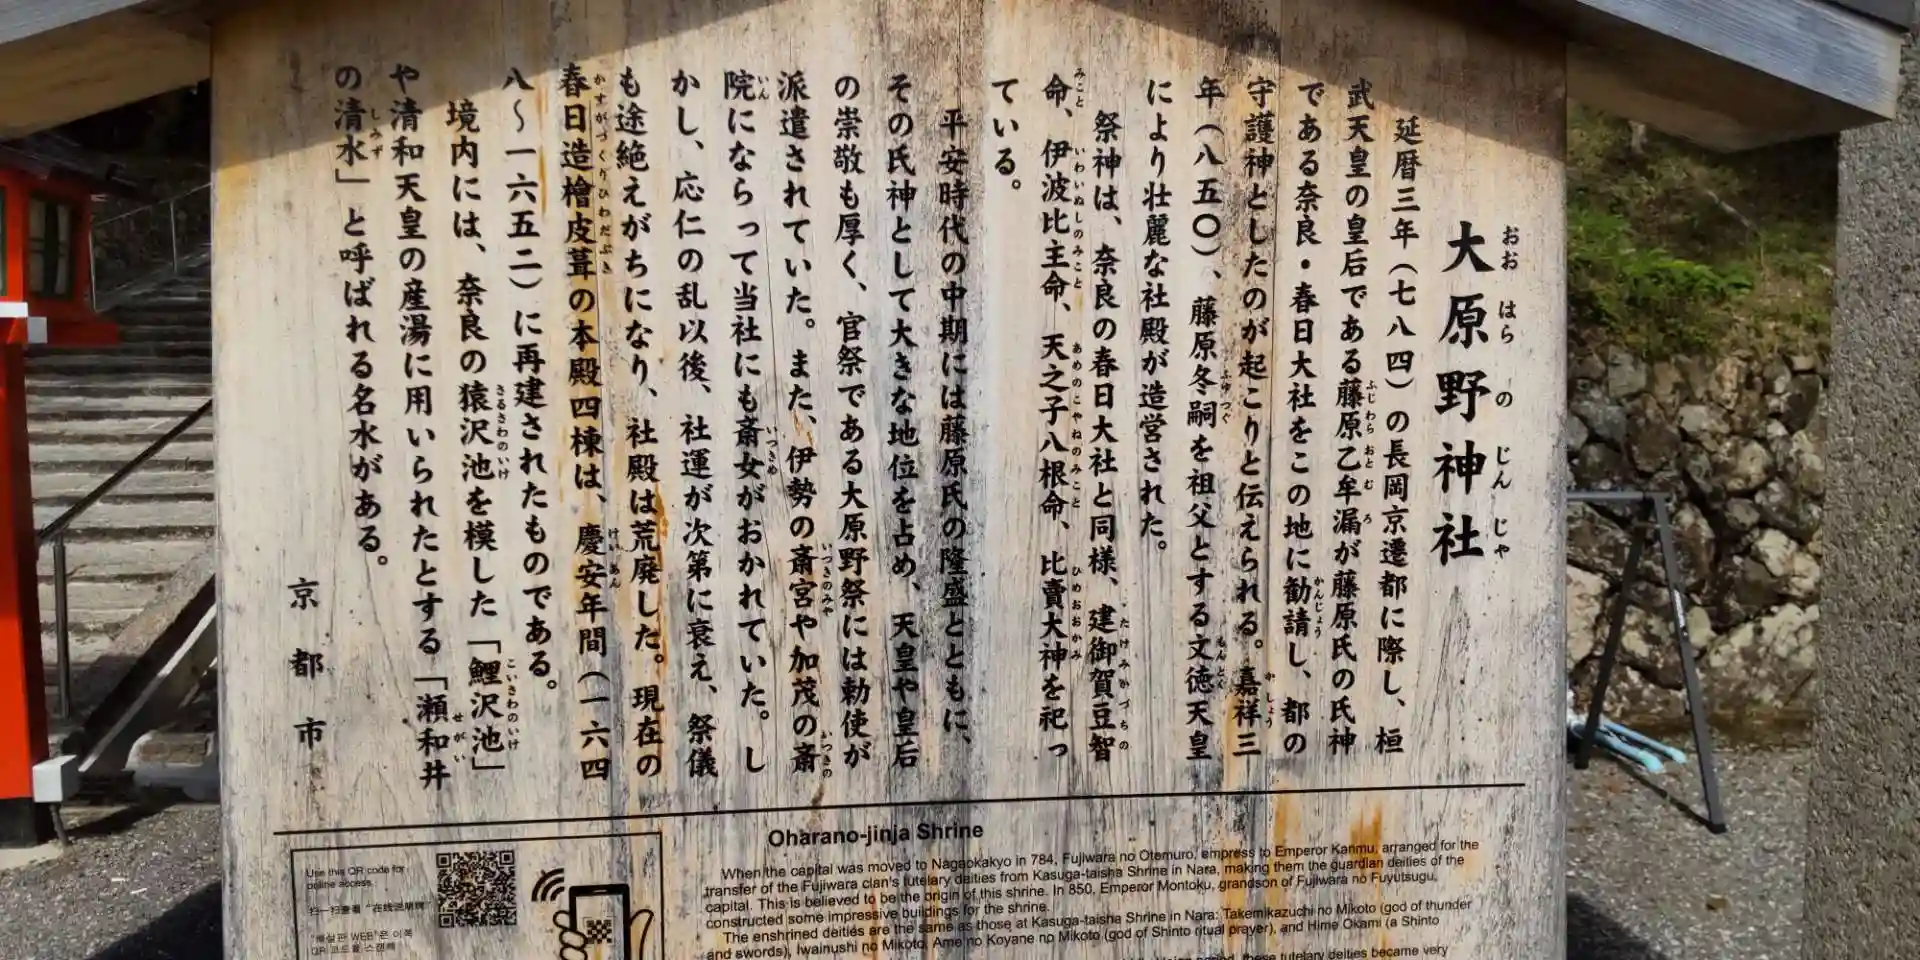 大原野神社
おおはらのじんじゃ
延暦三年（七八四）の長岡京遷都に際し、桓
武天皇の皇后である藤原乙牟漏が藤原氏の氏神
ふじわらおとむろ
である奈良・春日大社をこの地に勧請し、都の
かんじょう
守護神としたのが起こりと伝えられる。嘉祥三
かしょう
年（八五〇）、藤原冬嗣を祖父とする文徳天皇
ふゆつぐ もんとく
により壮麗な社殿が造営された。
祭神は、奈良の春日大社と同様、建御賀豆智
たけみかづちの
命、伊波比主命、天之子八根命、比賣大神を祀っ
みこと いわいぬしのみこと あめのこやねのみこと ひめおおかみ
ている。
平安時代の中期には藤原氏の隆盛とともに、
その氏神として大きな地位を占め、天皇や皇后
の崇敬も厚く、官祭である大原野祭には勅使が
派遣されていた。また、伊勢の斎宮や加茂の斎
いつきのみや いつきの
院にならって当社にも斎女がおかれていた。し
いん いつきめ
かし、応仁の乱以後、社運が次第に衰え、祭儀
も途絶えがちになり、社殿は荒廃した。現在の
春日造檜皮葺の本殿四棟は、慶安年間（一六四
かすがづくりひわだぶき けいあん
八～一六五二）に再建されたものである。
境内には、奈良の猿沢池を模した「鯉沢池」
さるさわのいけ こいさわのいけ
や清和天皇の産湯に用いられたとする「瀬和井
せがい
の清水」と呼ばれる名水がある。
しみず
京都市
Oharano-jinja Shrine
When the capital was moved to Nagaokakyo in 784, Fujiwara no Otomuro, empress to Emperor Kanmu, arranged for the
transfer of the Fujiwara clan's tutelary deities from Kasuga-taisha Shrine in Nara, making them the guardian deities of the
capital. This is believed to be the origin of this shrine. In 850, Emperor Montoku, grandson of Fujiwara no Fuyutsugu,
constructed some impressive buildings for the shrine.
The enshrined deities are the same as those at Kasuga-taisha Shrine in Nara: Takemikazuchi no Mikoto (god of thunder
and swords), Iwainushi no Mikoto, Ame no Koyane no Mikoto (god of Shinto ritual prayer), and Hime Okami (a Shinto
these tutelary deities became very
Use this QR code for
online access.
扫一扫查看"在线说明牌"
WEB"은 이쪽
QR 코드를 스캔해